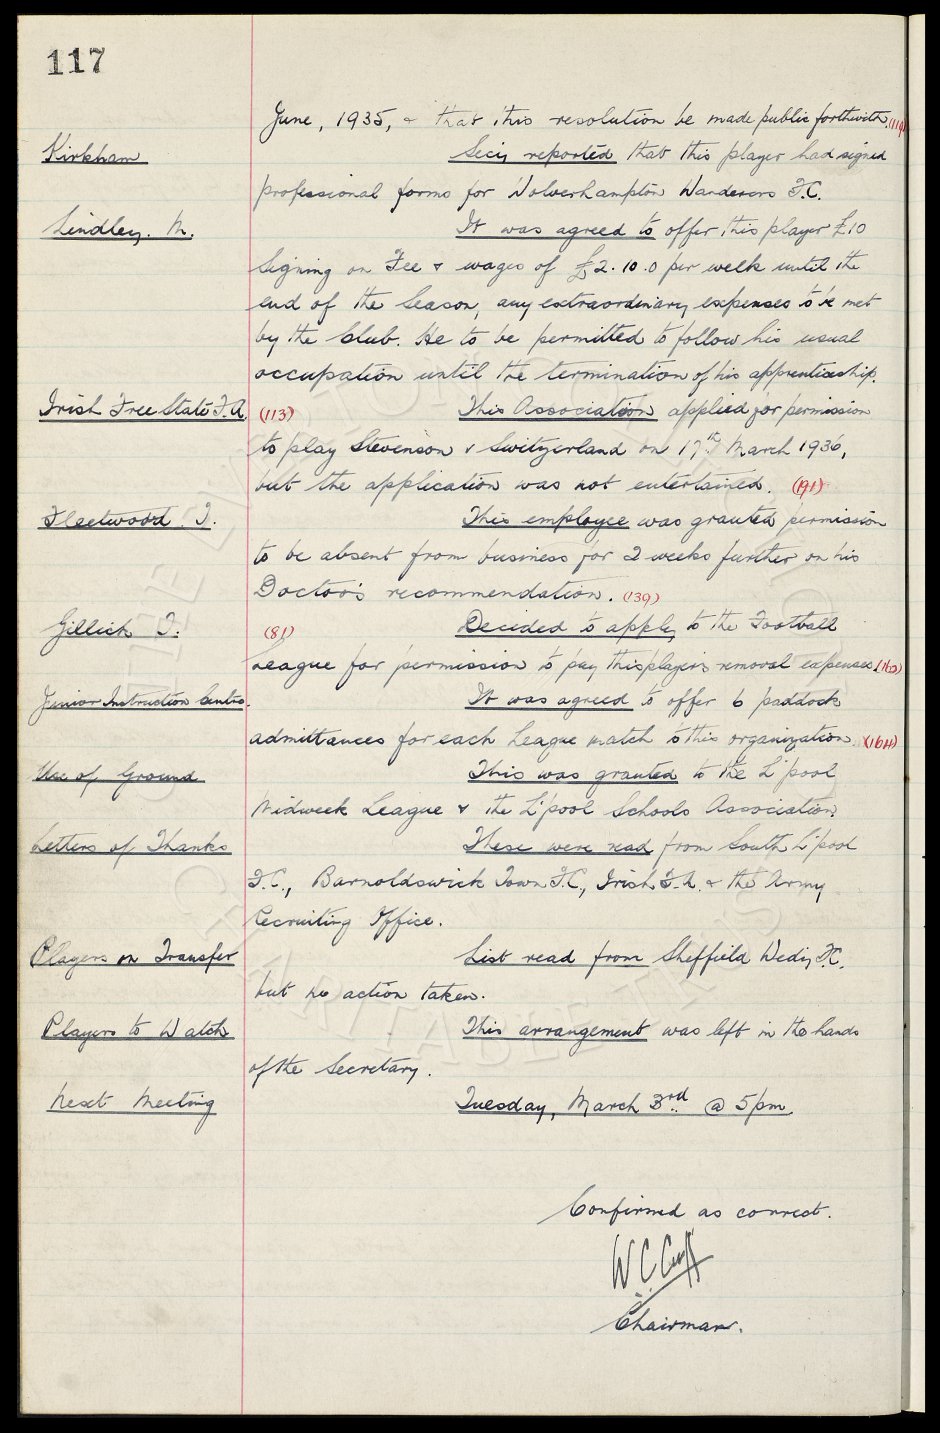 117
June, 1935, & that this resolution be made public forthwith. (119)
Kirkham Secy reported that this player had signed
professional forms for Wolverhampton Wanderers F.C.
Lindley. M. It was agreed to offer this player £10
Signing on Fee & wages of £2.10.0 per week until the
end of the Season, any extraordinary expenses to be met
by the Club. He to be permitted to follow his usual
occupation until the termination of his apprenticeship.
Irish Free State F.A. (113) This Association applied for permission
to play Stevenson v Switzerland on 17th March 1936,
but the application was not entertained. (191)
Fleetwood. T. This employee was granted permission
to be absent from business for 2 weeks further on his
Doctor's recommendation. (139)
Gillick T. (81) Decided to apply to the Football
League for permission to pay this player's removal expenses. (162)
Junior Instruction Centre. It was agreed to offer 6 paddock
admittances for each League match to this organization. (164)
Use of Ground This was granted to the L'pool
Midweek League & the L'pool Schools Association.
Letters of Thanks These were read from South L'pool
F.C., Barnoldswick Town F.C., Irish F.A. & the Army
Recruiting Office.
Players on Transfer List read from Sheffield Wedy F.C.
but no action taken.
Players to Watch This arrangement was left in the hands
of the Secretary.
Next Meeting Tuesday, March 3rd @ 5pm.
Confirmed as correct.
W C Cuff
Chairman.